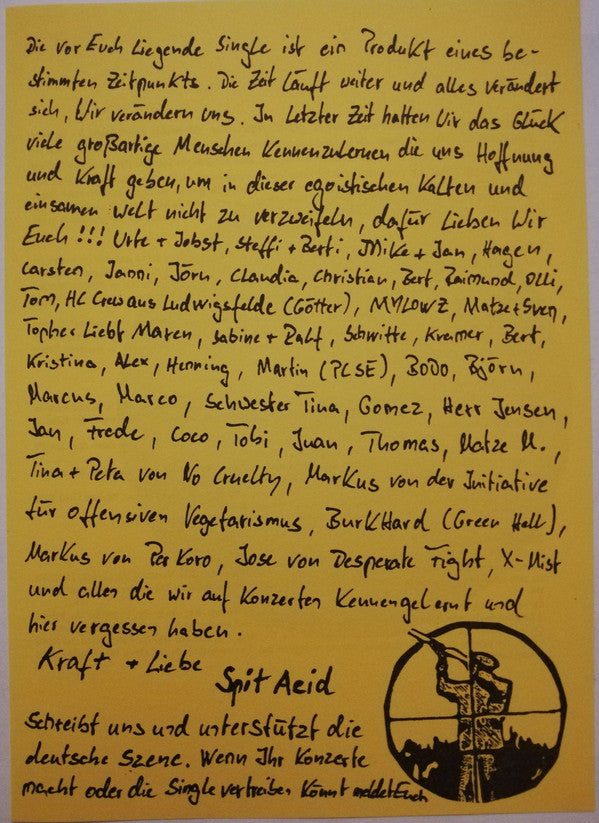 Die vor Euch liegende Single ist ein Produkt eines be-
stimmten Zeitpunkts. Die Zeit läuft weiter und alles verändert
sich, Wir verändern uns. In letzter Zeit hatten Wir das Glück
viele großartige Menschen kennenzulernen die uns Hoffnung
und Kraft geben, um in dieser egoistischen Kalten und
einsamen Welt nicht zu verzweifeln, dafür lieben Wir
Euch !!! Urte + Jobst, Steffi + Berti, Mike + Jan, Hagen,
Carsten, Janni, Jörn, Claudia, Christian, Bert, Raimund, Olli,
Tom, HC Crew aus Ludwigsfelde (Götter), MYLOWZ, Matze + Sven,
Topher Liebt Maren, Sabine + Ralf, Schwitte, Kramer, Bert,
Kristina, Alex, Henning, Martin (PCSE), BoDo, Björn,
Marcus, Marco, Schwester Tina, Gomez, Herr Jensen,
Jan, Frede, Coco, Tobi, Juan, Thomas, Matze M.,
Tina + Peta von No Cruelty, Markus von der Initiative
für offensiven Vegetarismus, BurkHard (Green Hell),
Markus von Per Koro, Jose von Desperate Fight, X-Mist
und allen die wir auf Konzerten Kennengelernt und
hier vergessen haben.
Kraft + Liebe
Spit Acid
Schreibt uns und unterstützt die
deutsche Szene. Wenn Ihr Konzerte
macht oder die Single vertreiben Könnt meldet Euch